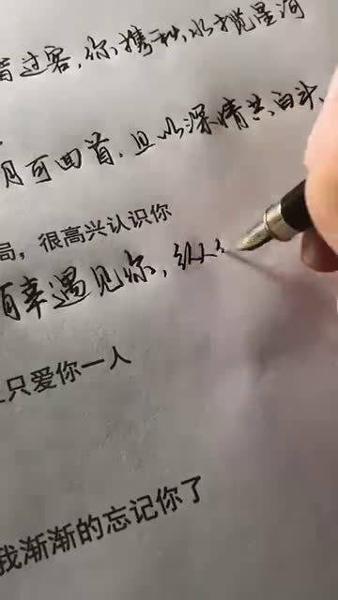 皆过客,你携秋水揽星河
月可回首,且以深情共白头。
局,很高兴认识你
有幸遇见你,纵
只爱你一人
我渐渐的忘记你了